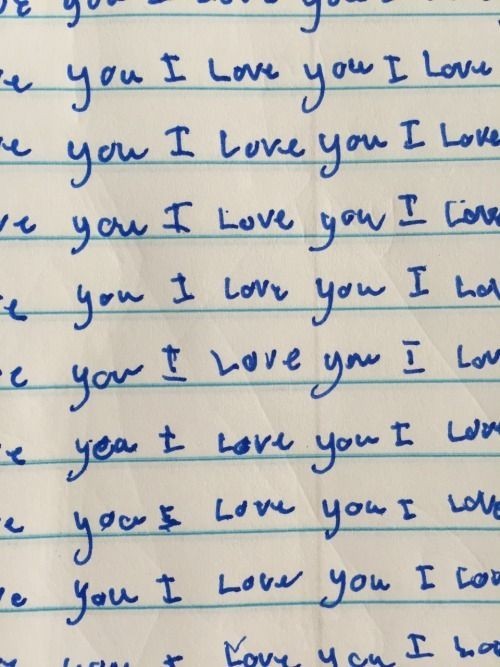 you I Love you
e you I Love you I Love
e you I Love you I Love
ve you I Love you I Love
e you I Love you I Lov
e you I Love you I Lov
e yea I Love you I Love
e you I Love you I Love
e you I Love you I Lov
you I Love you I Lo